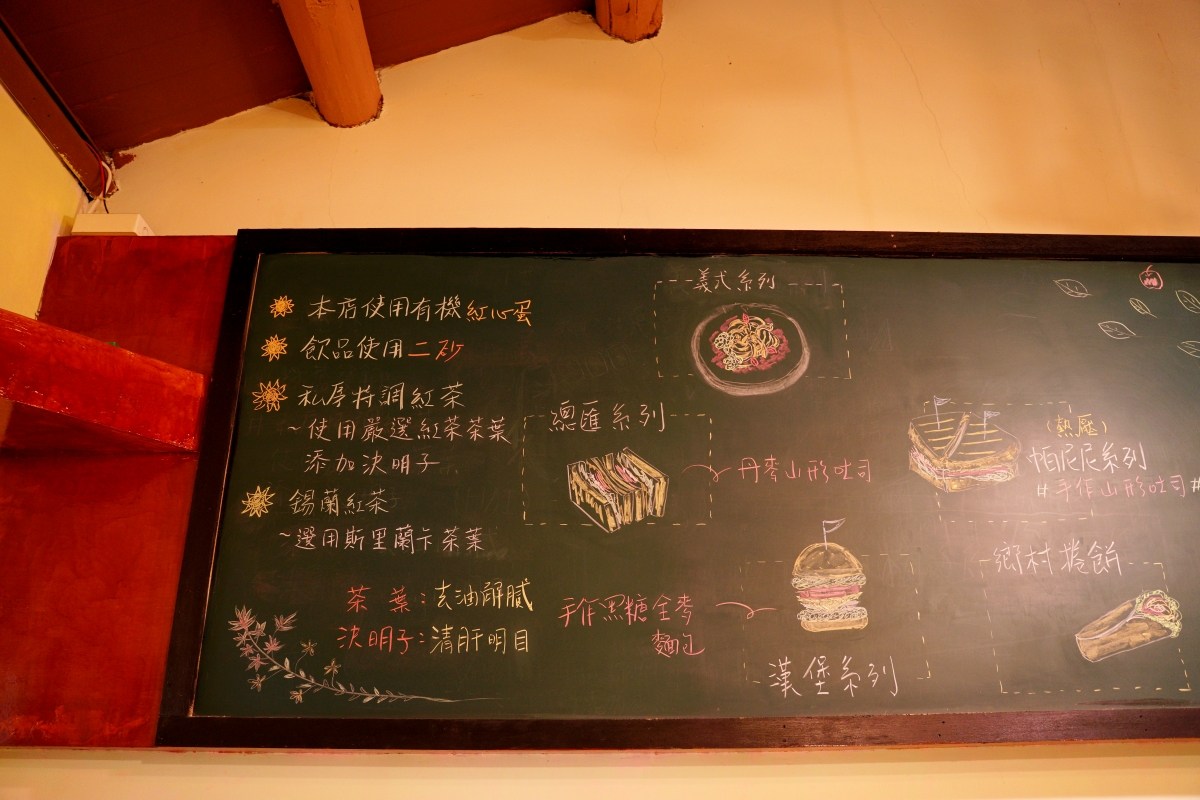 本店使用有機紅心蛋
飲品使用二砂
私房特調紅茶
~使用嚴選紅茶茶葉
添加決明子
錫蘭紅茶
~選用斯里蘭卡茶葉
茶葉：去油解膩
決明子：清肝明目
義式系列
總匯系列
丹麥山形吐司
(熱壓)
帕尼尼系列
#手作山形吐司#
手作黑糖全麥
麵包
漢堡系列
鄉村捲餅